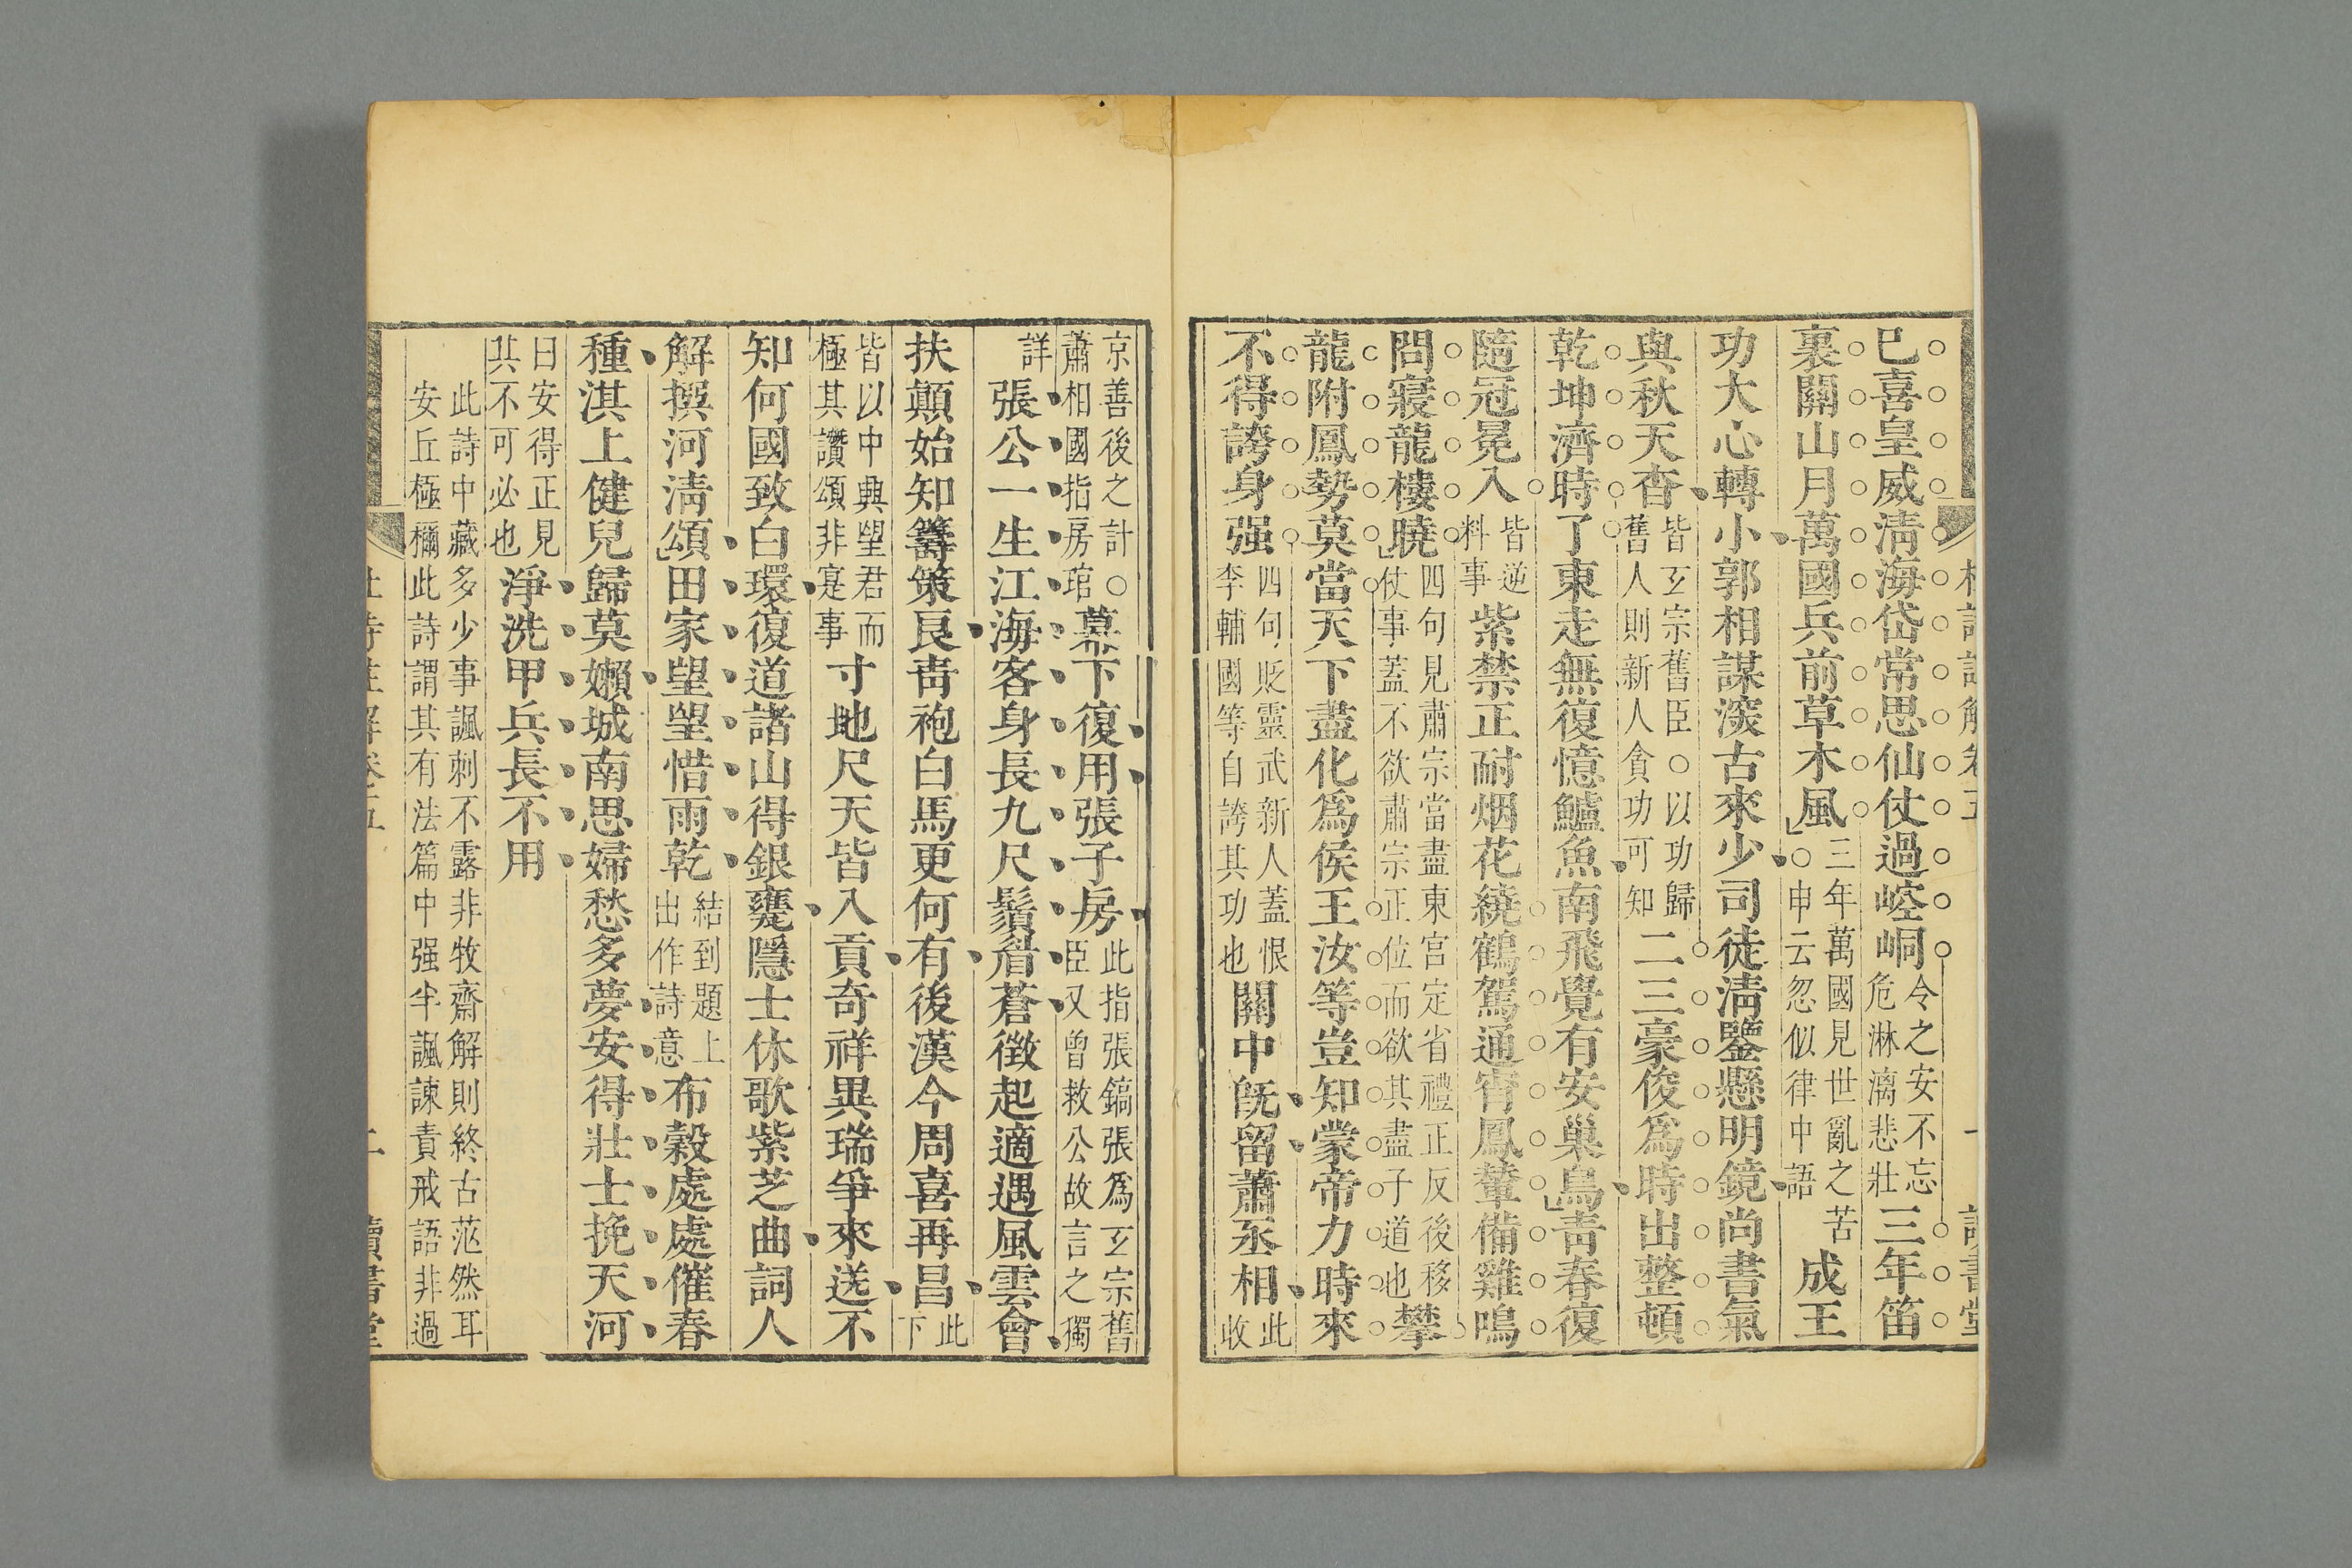 已喜皇威淸海岱常思仙仗過崆峒令之安不忘危淋漓悲壯三年笛
裏關山月萬國兵前草木風三年萬國見世亂之苦○申云忽似律中語成王
功大心轉小郭相謀深古來少司徒淸鑒懸明鏡尚書氣
與秋天杳皆玄宗舊臣○以功歸舊人則新人貪功可知二三豪俊爲時出整頓
乾坤濟時了東走無復憶鱸魚南飛覺有安巢鳥靑春復
隨冠冕入皆逆料事紫禁正耐烟花繞鶴駕通宵鳳輦備雞鳴
問寢龍樓曉四句見肅宗當盡東宮定省禮正反後移仗事蓋不欲肅宗正位而欲其盡子道也攀
龍附鳳勢莫當天下盡化爲侯王汝等豈知蒙帝力時來
不得誇身强四句貶靈武新人蓋恨李輔國等自誇其功也關中旣留蕭丞相此收
京善後之計○蕭相國指房琯幕下復用張子房此指張鎬張爲玄宗舊臣又曾救公故言之獨
詳張公一生江海客身長九尺鬚眉蒼徵起適遇風雲會
扶顚始知籌策良靑袍白馬更何有後漢今周喜再昌此下
皆以中興望君而極其讚頌非寔事寸地尺天皆入貢奇祥異瑞爭來送不
知何國致白環復道諸山得銀甕隱士休歌紫芝曲詞人
解撰河淸頌田家望望惜雨乾結到題上出作詩意布穀處處催春
種淇上健兒歸莫嬾城南思婦愁多夢安得壯士挽天河
曰安得正見其不可必也淨洗甲兵長不用
此詩中藏多少事諷刺不露非牧齋解則終古茫然耳
安丘極穪此詩謂其有法篇中强半諷諫責戒語非過
二